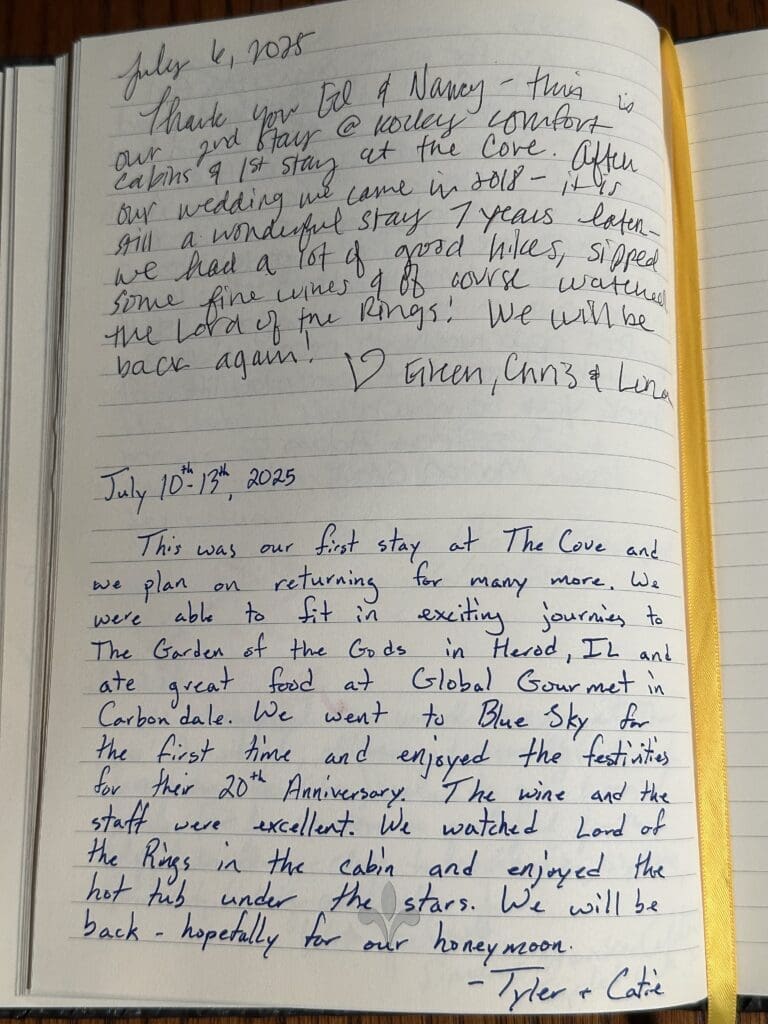 July 6, 2025
Thank you Ed & Nancy - this is
our 2nd stay @ Rocky Comfort
Cabins & 1st stay at the Cove. After
our wedding we came in 2018 - it is
still a wonderful stay 7 years later -
we had a lot of good hikes, sipped
some fine wines & of course watched
the Lord of the Rings! We will be
back again!
♡ Eileen, Chris & Luna
July 10th-13th, 2025
This was our first stay at The Cove and
we plan on returning for many more. We
were able to fit in exciting journies to
The Garden of the Gods in Herod, IL and
ate great food at Global Gourmet in
Carbondale. We went to Blue Sky for
the first time and enjoyed the festivities
for their 20th Anniversary. The wine and the
staff were excellent. We watched Lord of
the Rings in the cabin and enjoyed the
hot tub under the stars. We will be
back - hopefully for our honeymoon.
- Tyler + Catie